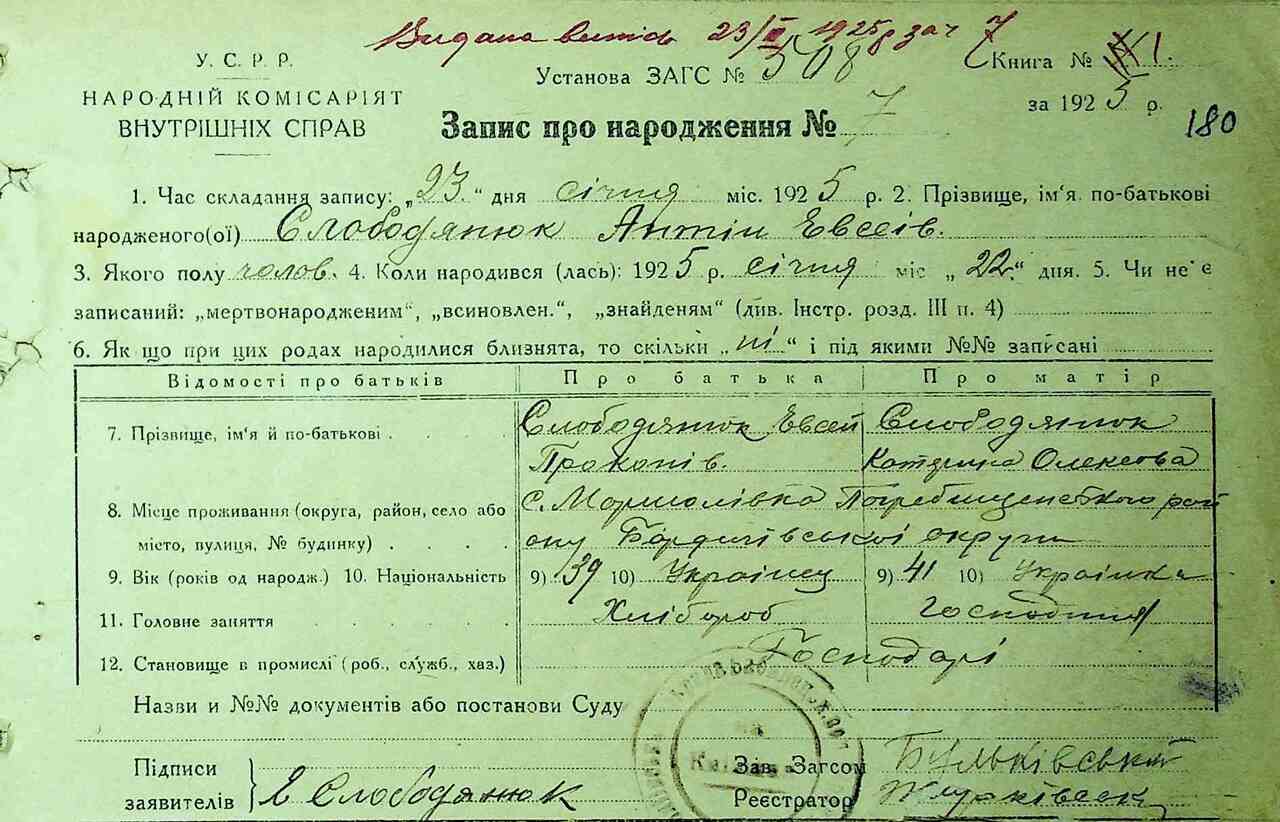 Видана випись 23/II 1925 р за ч 7
У. С. Р. Р.
Установа ЗАГС № 508
Книга № XI.
НАРОДНІЙ КОМІСАРІЯТ
за 1925 р.
ВНУТРІШНІХ СПРАВ
Запис про народження № 7
180
1. Час складання запису: „23.“ дня січня міс. 1925 р. 2. Прізвище, ім'я по-батькові
народженого(ої) Слободянюк Антін Евсеїв.
3. Якого полу чолов. 4. Коли народився (лась): 1925 р. січня міс „22.“ дня. 5. Чи не є
записаний: „мертвонародженим“, „всиновлен.“, „знайденям“ (див. Інстр. розд. III п. 4)
6. Як що при цих родах народилися близнята, то скільки „ні“ і під якими №№ записані
Відомості про батьків Про батька Про матір
7. Прізвище, ім'я й по-батькові . . . . Слободянюк Евсей Слободянюк
Прокопів. Катерина Олексова
8. Місце проживання (округа, район, село або с. Погребищенського рай
місто, вулиця, № будинку) . . . . ону Бердичівської округи
9. Вік (років од народж.) 10. Національність 9) 39 10) Українец 9) 41 10) Українка
11. Головне заняття . . . . . Хлібороб Господиня
12. Становище в промислі (роб., служб., хаз.) Господарі
Назви и №№ документів або постанови Суду
Підписи
заявителів Е Слободянюк
Зав. Загсом
Реєстратор